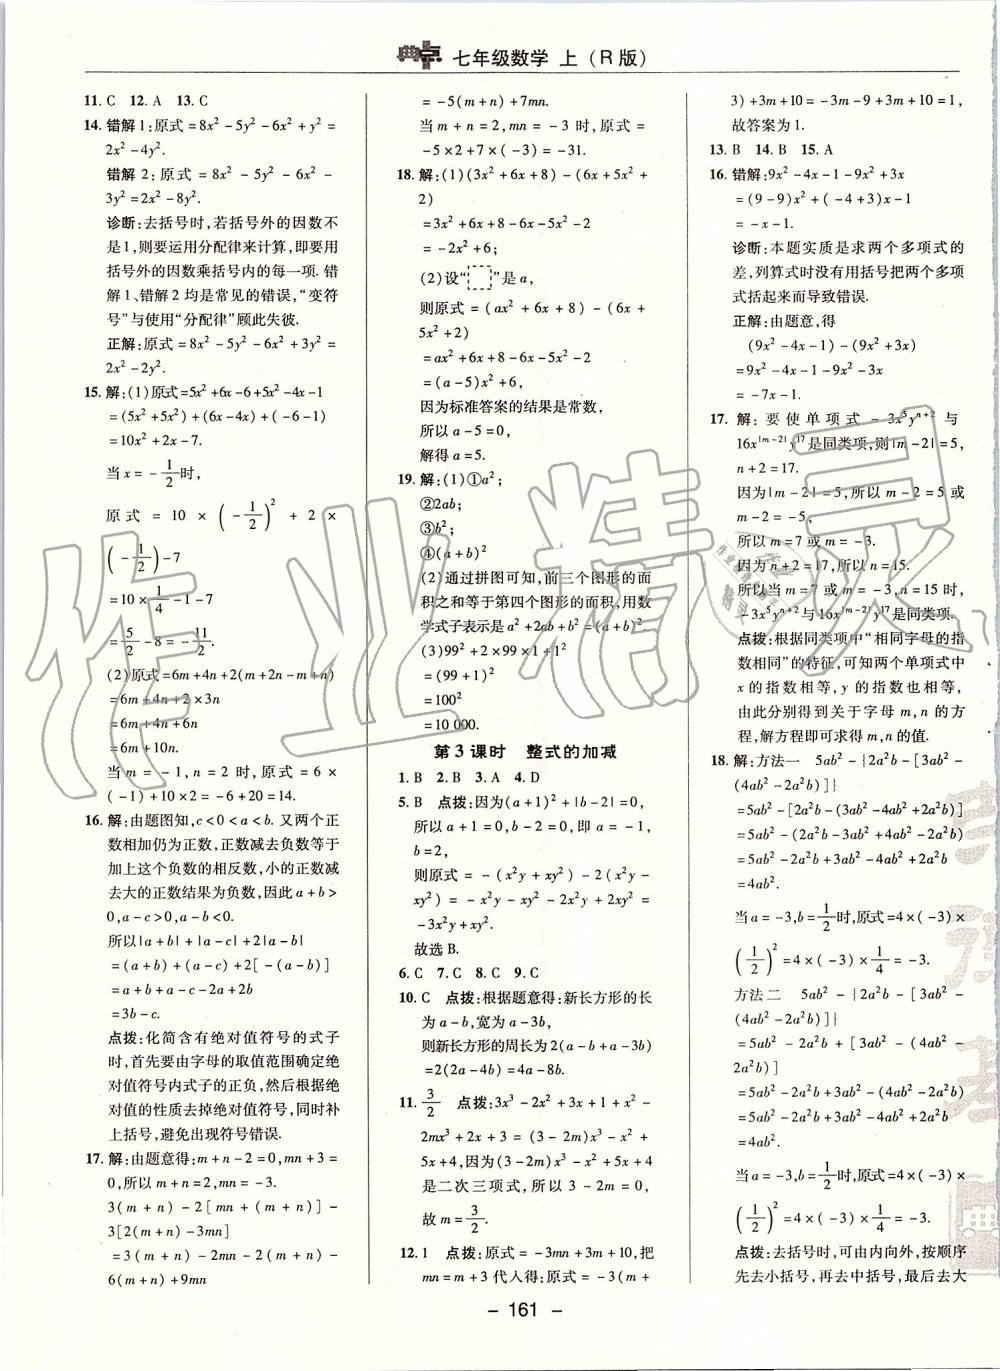 典点 七年级数学 上(R版)
11. C 12. A 13. C
14. 错解1:原式=8x²-5y²-6x²+y²=
2x²-4y².
错解2:原式=8x²-5y²-6x²-
3y²=2x²-8y².
诊断:去括号时,若括号外的因数不
是1,则要运用分配律来计算,即要用
括号外的因数乘括号内的每一项. 错
解1、错解2均是常见的错误,“变符
号”与使用“分配律”顾此失彼.
正解:原式=8x²-5y²-6x²+3y²=
2x²-2y².
15. 解:(1)原式=5x²+6x-6+5x²-4x-1
=(5x²+5x²)+(6x-4x)+(-6-1)
=10x²+2x-7.
当x=-1/2时,
原式=10×(-1/2)²+2×
(-1/2)-7
=10×1/4-1-7
=5/2-8=-11/2.
(2)原式=6m+4n+2(m+2n-m+n)
=6m+4n+2×3n
=6m+4n+6n
=6m+10n.
当m=-1,n=2时,原式=6×
(-1)+10×2=-6+20=14.
16. 解:由题图知,c<0<a<b. 又两个正
数相加仍为正数,正数减去负数等于
加上这个负数的相反数,小的正数减
去大的正数结果为负数,因此a+b>
0,a-c>0,a-b<0.
所以|a+b|+|a-c|+2|a-b|
=(a+b)+(a-c)+2[-(a-b)]
=a+b+a-c-2a+2b
=3b-c.
点拨:化简含有绝对值符号的式子
时,首先要由字母的取值范围确定绝
对值符号内式子的正负,然后根据绝
对值的性质去掉绝对值符号,同时补
上括号,避免出现符号错误.
17. 解:由题意得:m+n-2=0,mn+3=
0,所以m+n=2,mn=-3.
3(m+n)-2[mn+(m+n)]-
3[2(m+n)-3mn]
=3(m+n)-2mn-2(m+n)-
6(m+n)+9mn
=-5(m+n)+7mn.
当m+n=2,mn=-3时,原式=
-5×2+7×(-3)=-31.
18. 解:(1)(3x²+6x+8)-(6x+5x²+
2)
=3x²+6x+8-6x-5x²-2
=-2x²+6;
(2)设“□”是a,
则原式=(ax²+6x+8)-(6x+
5x²+2)
=ax²+6x+8-6x-5x²-2
=(a-5)x²+6,
因为标准答案的结果是常数,
所以a-5=0,
解得a=5.
19. 解:(1)①a²;
②2ab;
③b²;
④(a+b)²
(2)通过拼图可知,前三个图形的面
积之和等于第四个图形的面积,用数
学式子表示是a²+2ab+b²=(a+b)²
(3)99²+2×99×1+1²
=(99+1)²
=100²
=10 000.
第3课时 整式的加减
1. B 2. B 3. A 4. D
5. B 点拨:因为(a+1)²+|b-2|=0,
所以a+1=0,b-2=0,即a=-1,
b=2,
则原式=-(x²y+xy²)-2(x²y-
xy²)=-x²y-xy²-2x²y+2xy²=
-3x²y+xy².
故选B.
6. C 7. C 8. C 9. C
10. C 点拨:根据题意得:新长方形的长
为a-b,宽为a-3b,
则新长方形的周长为2(a-b+a-3b)
=2(2a-4b)=4a-8b.
11. 3/2 点拨:3x³-2x²+3x+1+x²-
2mx³+2x+3=(3-2m)x³-x²+
5x+4,因为(3-2m)x³-x²+5x+4
是二次三项式,所以3-2m=0,
故m=3/2.
12. 1 点拨:原式=-3mn+3m+10,把
mn=m+3代入得:原式=-3(m+
3)+3m+10=-3m-9+3m+10=1,
故答案为1.
13. B 14. B 15. A
16. 错解:9x²-4x-1-9x²+3x
=(9-9)x²+(-4+3)x-1
=-x-1.
诊断:本题实质是求两个多项式的
差,列算式时没有用括号把两个多项
式括起来而导致错误.
正解:由题意,得
(9x²-4x-1)-(9x²+3x)
=9x²-4x-1-9x²-3x
=-7x-1.
17. 解:要使单项式-3x⁵yⁿ⁺²与
16x^|m-2|y¹⁷是同类项,则|m-2|=5,
n+2=17.
因为|m-2|=5,所以m-2=5或
m-2=-5,
所以m=7或m=-3.
因为n+2=17,所以n=15.
所以当m=7或m=-3,n=15时,
-3x⁵yⁿ⁺²与16x^|m-2|y¹⁷是同类项.
点拨:根据同类项中“相同字母的指
数相同”的特征,可知两个单项式中
x的指数相等,y的指数也相等,
由此分别得到关于字母m,n的方
程,解方程即可求得m,n的值.
18. 解:方法一 5ab²-{2a²b-[3ab²-
(4ab²-2a²b)]}
=5ab²-[2a²b-(3ab²-4ab²+2a²b)]
=5ab²-(2a²b-3ab²+4ab²-2a²b)
=5ab²-2a²b+3ab²-4ab²+2a²b
=4ab².
当a=-3,b=1/2时,原式=4×(-3)×
(1/2)²=4×(-3)×1/4=-3.
方法二 5ab²-{2a²b-[3ab²-
(4ab²-2a²b)]}
=5ab²-2a²b+[3ab²-(4ab²-
2a²b)]
=5ab²-2a²b+3ab²-(4ab²-2a²b)
=5ab²-2a²b+3ab²-4ab²+2a²b
=4ab².
当a=-3,b=1/2时,原式=4×(-3)×
(1/2)²=4×(-3)×1/4=-3.
点拨:去括号时,可由内向外,按顺序
先去小括号,再去中括号,最后去大
- 161 -
作业精灵